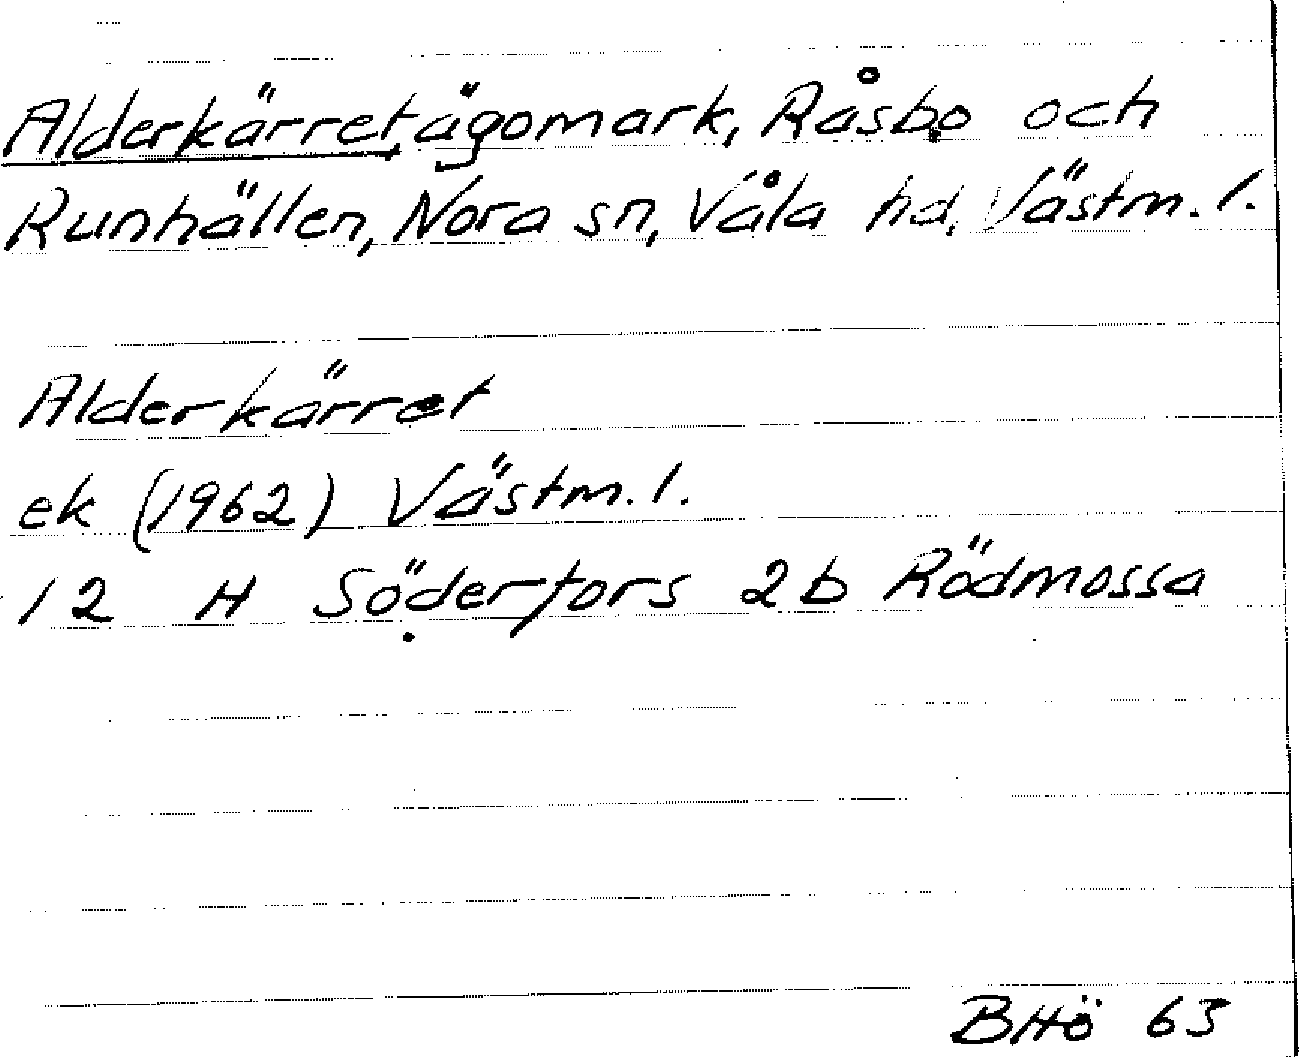 Alderkärret, ägomark, Råsbo och
Runhällen, Nora sn, Våla hd, Västm. l.
Alderkärret
ek (1962) Västm. l.
12 H Söderfors 2b Rödmossa
BHö 63